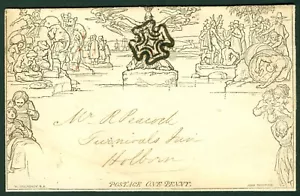 Mr R Peacock
Furnivals Inn
Holborn
POSTAGE ONE PENNY.